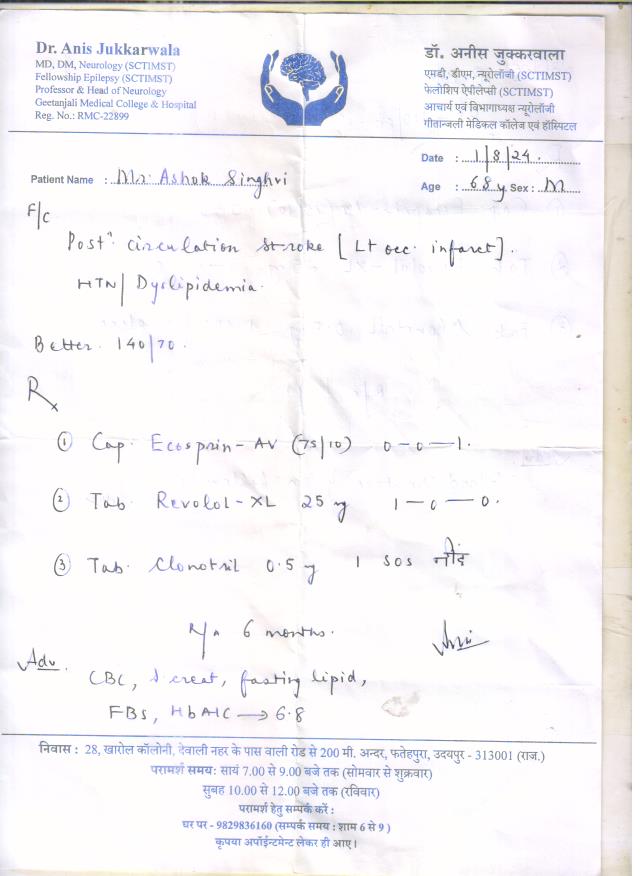 Dr. Anis Jukkarwala
MD, DM, Neurology (SCTIMST)
Fellowship Epilepsy (SCTIMST)
Professor & Head of Neurology
Geetanjali Medical College & Hospital
Reg. No.: RMC-22899
डॉ. अनीस जुक्करवाला
एमडी, डीएम, न्यूरोलॉजी (SCTIMST)
फेलोशिप ऐपीलेप्सी (SCTIMST)
आचार्य एवं विभागाध्यक्ष न्यूरोलॉजी
गीतान्जली मेडिकल कॉलेज एवं हॉस्पिटल
Date : 1/8/24.
Patient Name : Mr. Ashok Singhvi
Age : 68 y Sex : M
F/c
Postn circulation stroke [Lt occ. infarct].
HTN/ Dyslipidemia.
Better. 140/70.
Rx
① Cap. Ecosprin-AV (75/10) 0-0-1.
② Tab Revolol-XL 25 mg 1-0-0.
③ Tab. Clonotril 0.5 mg 1 SOS नींद
R/A 6 months.
Adv.
CBC, S creat, fasting lipid,
FBS, HbA1C → 6.8
निवास : 28, खारोल कॉलोनी, देवाली नहर के पास वाली रोड से 200 मी. अन्दर, फतेहपुरा, उदयपुर - 313001 (राज.)
परामर्श समय: सायं 7.00 से 9.00 बजे तक (सोमवार से शुक्रवार)
सुबह 10.00 से 12.00 बजे तक (रविवार)
परामर्श हेतु सम्पर्क करें :
घर पर - 9829836160 (सम्पर्क समय : शाम 6 से 9 )
कृपया अपॉईन्टमेन्ट लेकर ही आए।